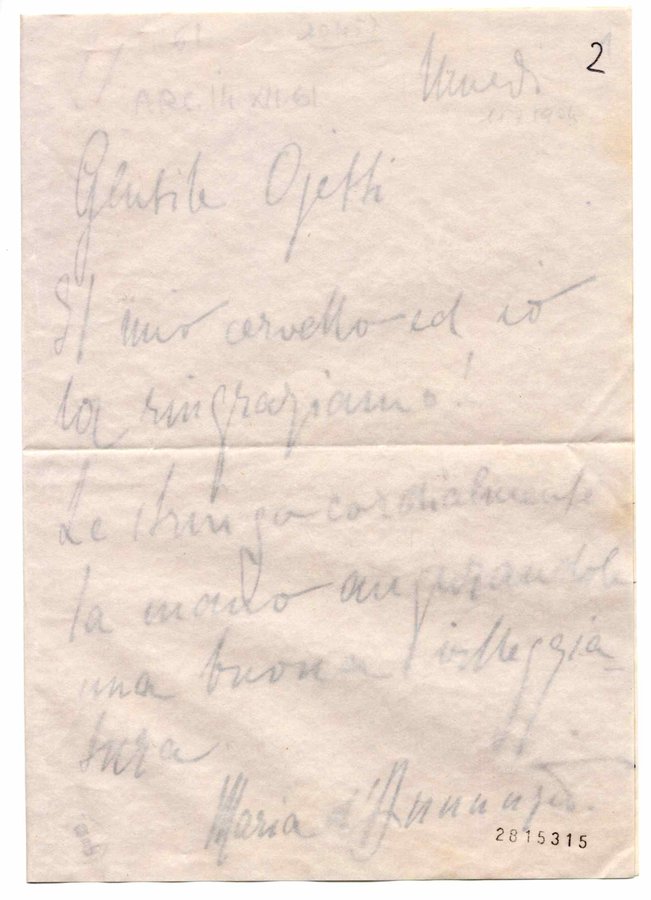 2
Venerdì
ARC. 14 XII. 61
Gentile Ojetti
Il mio cervello ed io
La ringraziamo!
Le stringo cordialmente
la mano augurandole
una buona villeggia-
tura.
Maria d'Annunzio.
2815315